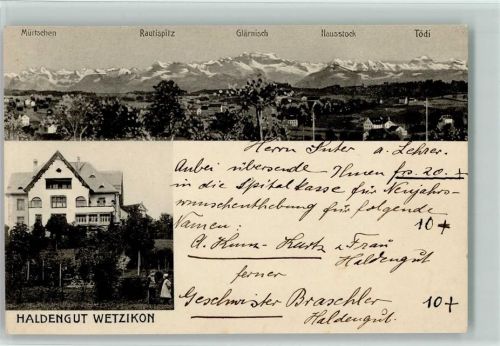 Mürtschen Rautispitz Glärnisch Hausstock Tödi
Herrn Suter a. Lehrer.
Anbei übersende Ihnen frs. 20.
in die Spitalkasse für Neujahrs-
wunschenthebung für folgende
Namen: 10 +
A. Kunz-Kurtz & Frau
Haldengut
ferner
Geschwister Braschler 10 +
Haldengut.
HALDENGUT WETZIKON